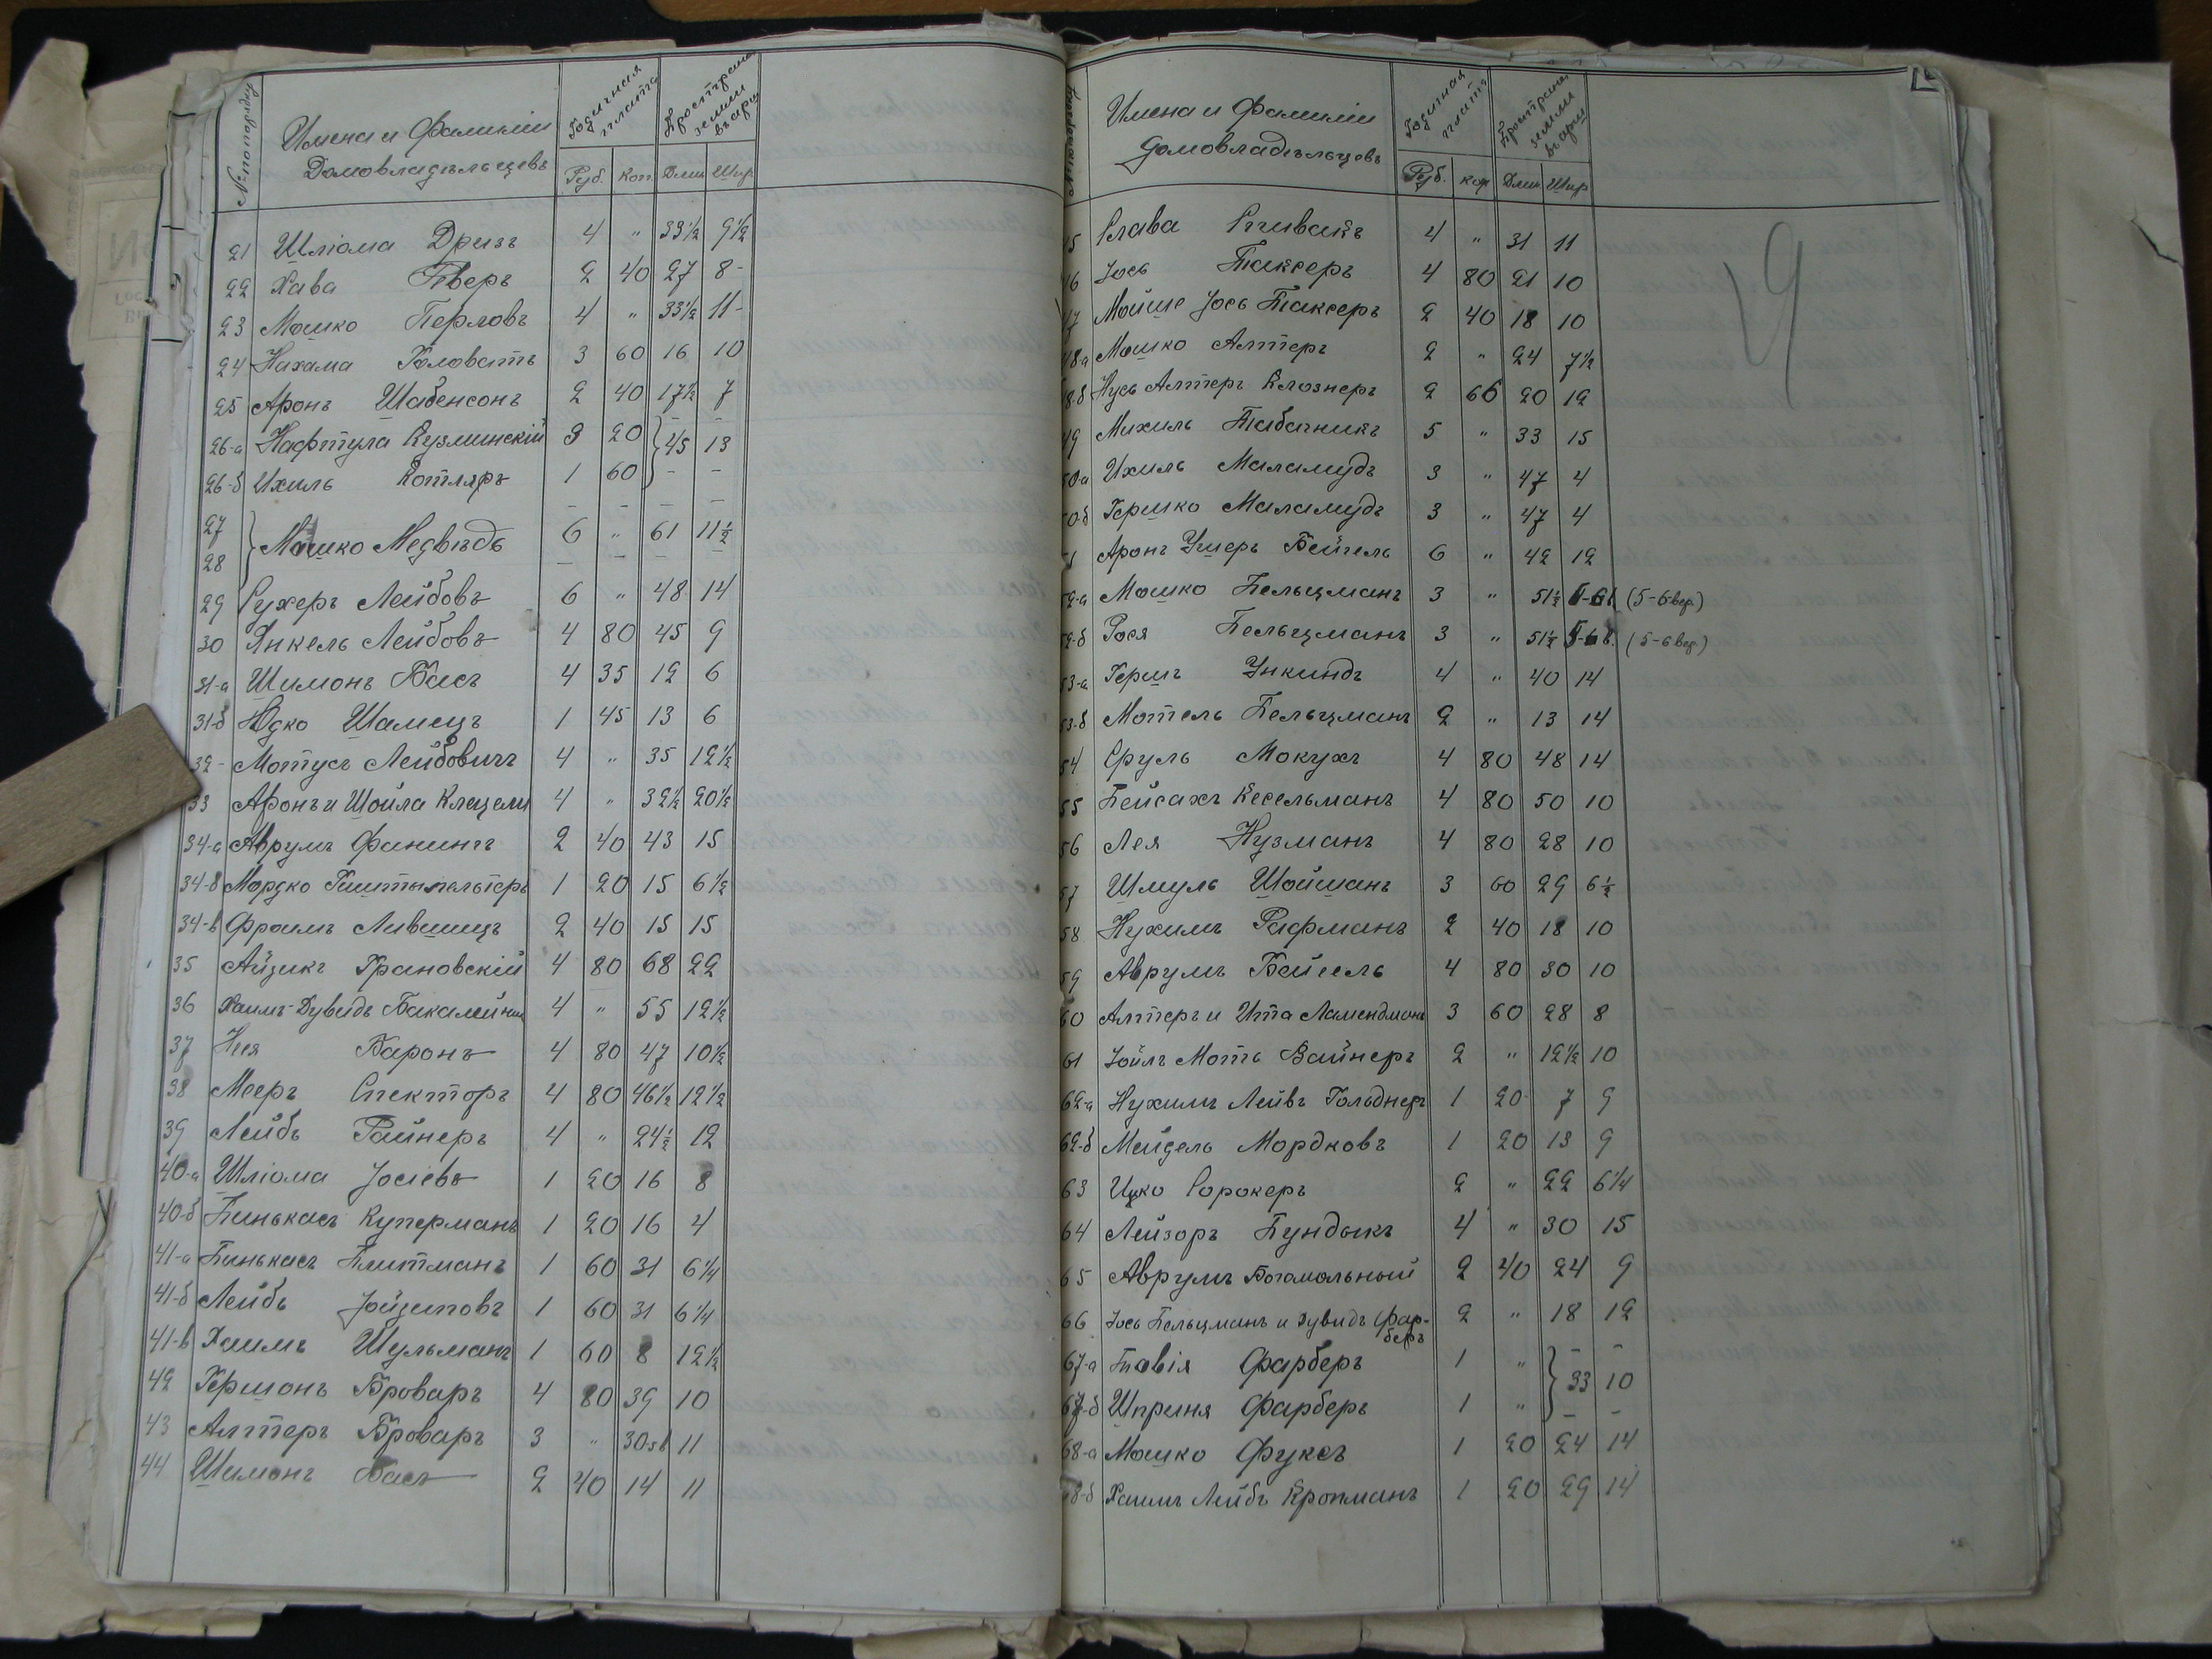 № по порядку
Имена и Фамиліи
Домовладѣльцевъ
Годичная плата
Простран. земли въ арш
Руб. Коп. Длин Шир
21 Шліома Дризъ 4 " 33½ 9½
22 Хава Тверъ 2 40 27 8-
23 Мошко Перловъ 4 " 33½ 11-
24 Нахама Головатъ 3 60 16 10
25 Аронъ Шабенсонъ 2 40 17½ 7
26-а Нафтула Кузминскій 3 20 } 45 13
26-б Ихиль Котляръ 1 60
27
28 } Мошко Медвѣдь 6 " 61 11½
29 Сухеръ Лейбовъ 6 " 48 14
30 Янкель Лейбовъ 4 80 45 9
31-а Шимонъ Басъ 4 35 12 6
31-б Юдко Шамецъ 1 45 13 6
32- Мотусъ Лейбовичъ 4 " 35 12½
33 Аронъ и Шойла Клецели 4 " 32½ 20½
34-а Аврумъ Фанингъ 2 40 43 15
34-б Мордко 1 20 15 6½
34-в Фроимъ Лившицъ 2 40 15 15
35 Айзикъ Грановскій 4 80 68 22
36 Хаимъ-Дувидъ 4 " 55 12½
37 Нея Баронъ 4 80 47 10½
38 Мееръ Спекторъ 4 80 46½ 12½
39 Лейбъ Файнеръ 4 " 24½ 12
40-а Шліома Іосіевъ 1 20 16 8
40-б Пинькасъ Куперманъ 1 20 16 4
41-а Пинькасъ Плитманъ 1 60 31 6¼
41-б Лейбъ Іойциповъ 1 60 31 6¼
41-в Хаимъ Шульманъ 1 60 8 12½
42 Гершонъ Броваръ 4 80 39 10
43 Алтеръ Броваръ 3 " 11
44 Шимонъ Басъ 2 40 14 11
Имена и Фамиліи
домовладѣльцевъ
Годичная плата
Простран. земли въ арш
Руб. коп Длин Шир
5 Слава Спивакъ 4 " 31 11
46 Іось Таксеръ 4 80 21 10
47 Мойше Іось Таксеръ 2 40 18 10
48-а Мошко Алтеръ 2 " 24 7½
8-б Нусь Алтеръ Клознеръ 2 66 20 12
49 Михиль Табачникъ 5 " 33 15
50-а Ихиль Маламудъ 3 " 47 4
50-б Гершко Маламудъ 3 " 47 4
51 Аронъ Ушеръ Бейгель 6 " 42 12
52-а Мошко Пельцманъ 3 " 51½ (5-6 вер.)
52-б Рося Пельцманъ 3 " 51½ (5-6 вер.)
53-а Гершъ Ункиндъ 4 " 40 14
53-б Мотель Пельцманъ 2 " 13 14
54 Сруль Мокухъ 4 80 48 14
55 Пейсахъ Кесельманъ 4 80 50 10
56 Лея Нузманъ 4 80 28 10
57 Шмуль Шойманъ 3 60 29 6½
58 Нухимъ Рафманъ 2 40 18 10
59 Аврумъ Байсель 4 80 30 10
60 Алтеръ и Ита Ламендманъ 3 60 28 8
61 Іойлъ Моть Вайнеръ 2 " 12½ 10
62-а Нухимъ Лейвъ Гольднеръ 1 20 7 9
62-б Мендель Мордковъ 1 20 13 9
63 Ицко Сорокеръ 2 " 22 6¼
64 Лейзоръ Бундыкъ 4 " 30 15
65 Аврумъ Богомольный 2 40 24 9
66 Іось Пельцманъ и Дувидъ Фар-
беръ 2 " 18 12
67-а Товія Фарберъ 1 " } 33 10
67-б Шприня Фарберъ 1 "
68-а Мошко Фуксъ 1 20 24 14
68-б Хаимъ Лейбъ Кропманъ 1 20 29 14